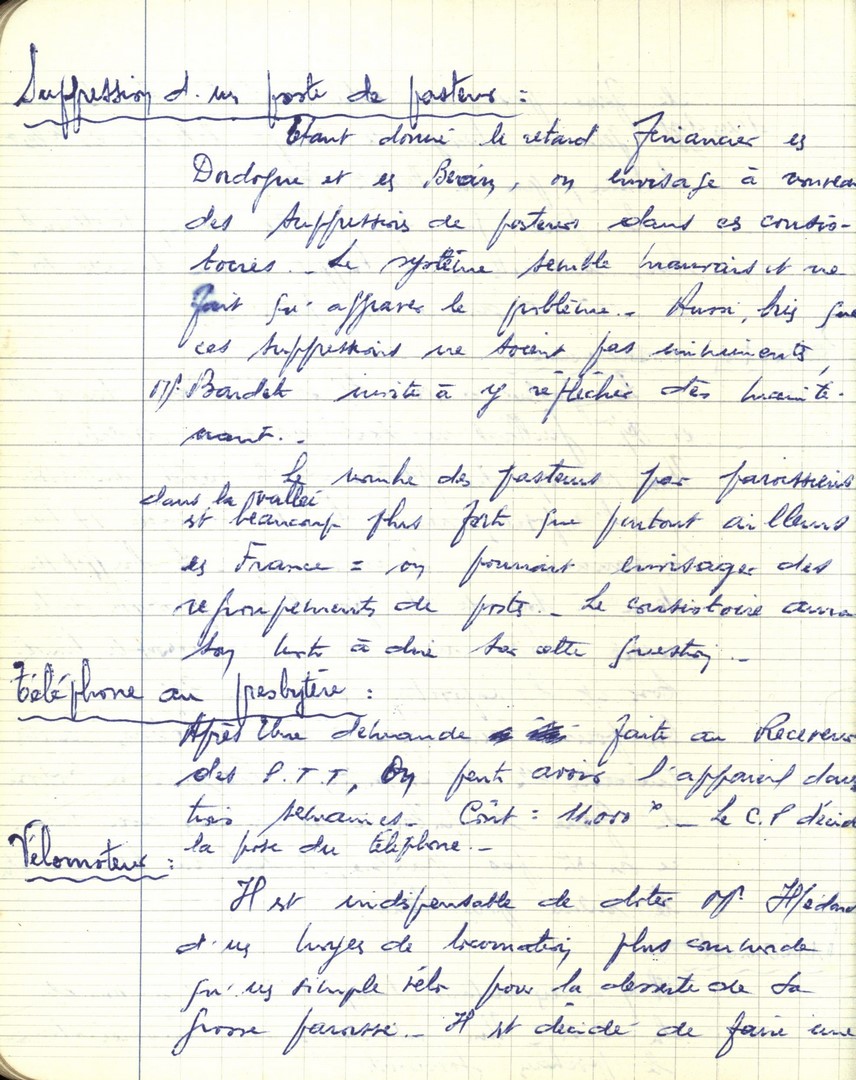 Suppression d'un poste de pasteur :
Etant donné le retard financier en
Dordogne et en Béarn, on envisage à nouveau
des suppressions de pasteurs dans ces consis-
toires. - Le système semble mauvais et ne
fait qu'aggraver le problème. - Aussi, bien que
ces suppressions ne soient pas imminentes,
Mr Bardet invite à y réfléchir dès mainte-
nant. -
Le nombre des pasteurs par paroissiens
dans la vallée
est beaucoup plus fort que partout ailleurs
en France = on pourrait envisager des
regroupements de postes. - Le consistoire aura
son mot à dire sur cette question. -
Téléphone au presbytère :
Après une demande faite au Receveur
des P.T.T, On peut avoir l'appareil dans
trois semaines. - Coût : 11.000 . - Le C.P décid
la pose du téléphone. -
Vélomoteur :
Il est indispensable de doter Mr
d'un moyen de locomotion plus commode
qu'un simple vélo pour la desserte de sa
grosse paroisse. - Il est décidé de faire une